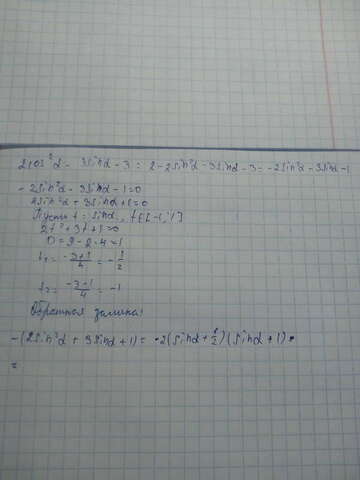 2cos²α - 3sinα - 3 = 2 - 2sin²α - 3sinα - 3 = -2sin²α - 3sinα - 1
- 2sin²α - 3sinα - 1 = 0
2sin²α + 3sinα + 1 = 0
Пусть t = sinα, t∈[-1;1]
2t² + 3t + 1 = 0
D = 9 - 2·4 = 1
t₁ = (-3+1)/4 = -1/2
t₂ = (-3-1)/4 = -1
Обратная замена:
-(2sin²α + 3sinα + 1) = -2(sinα + 1/2)(sinα + 1)
=